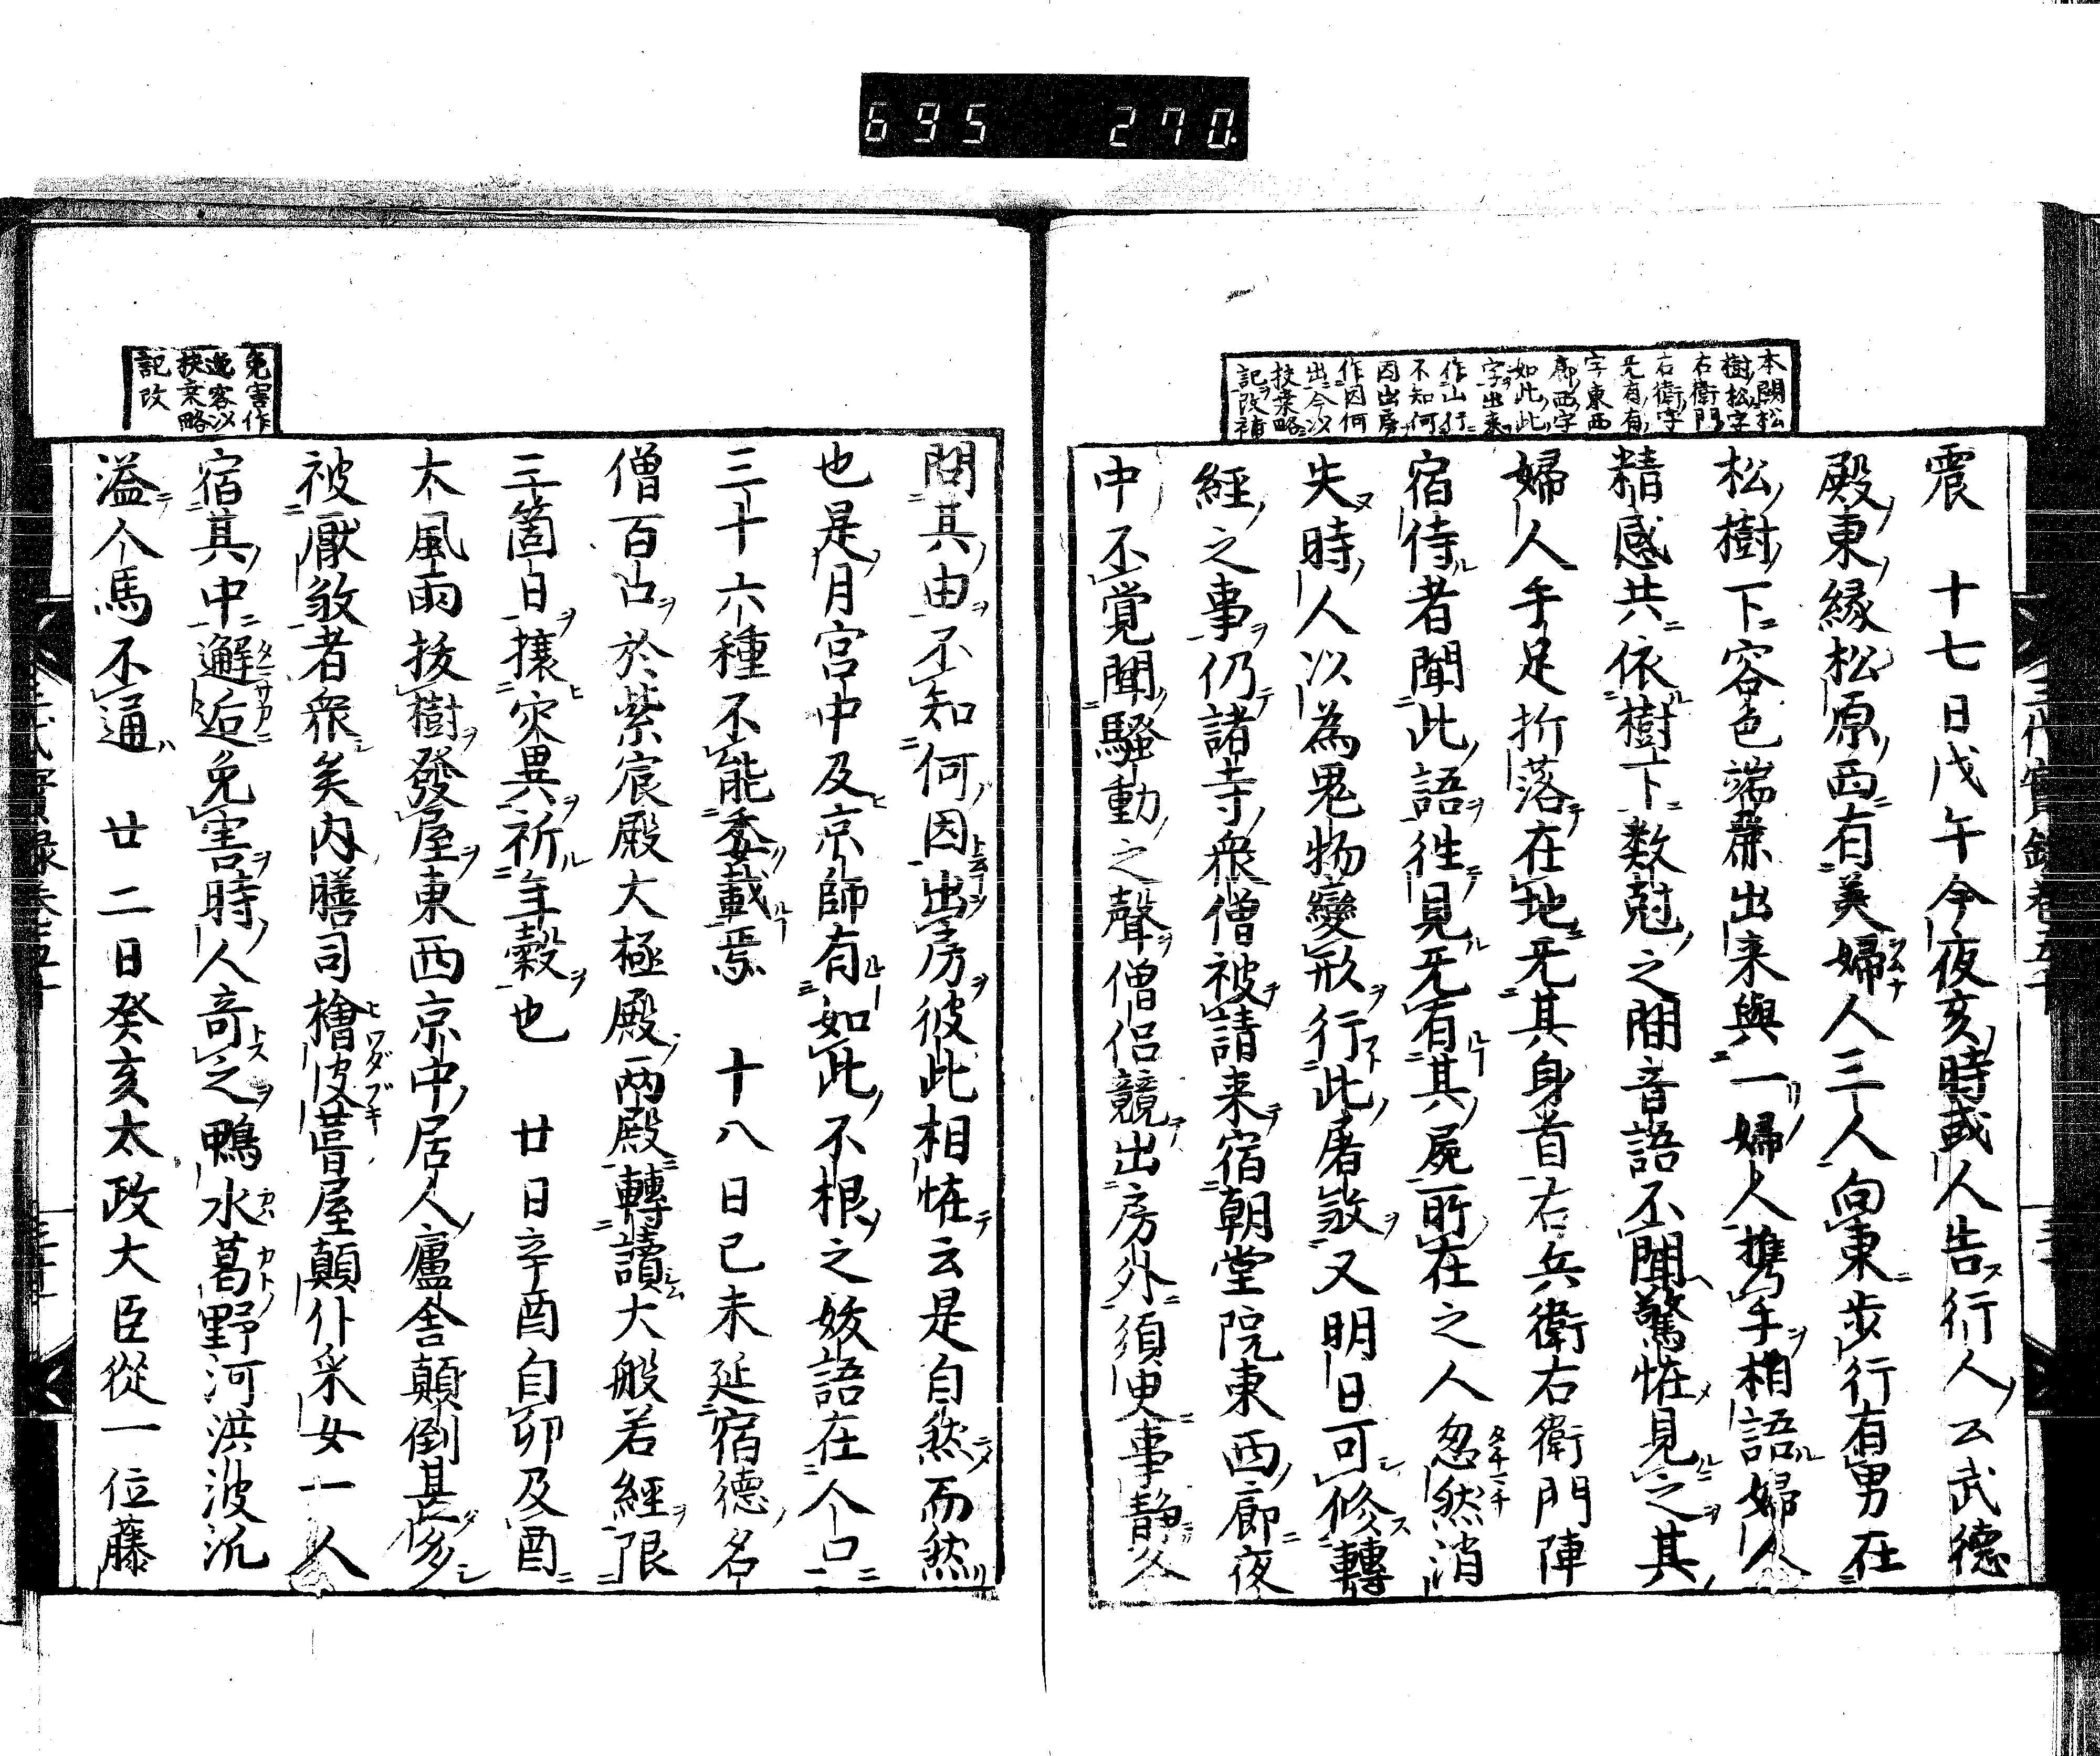 695 270.
本闕松
樹松字
右衛門
右衛字
无有有
字東西
廊西字
如此此
字出来
作山行
不知何
因出房
作因何
出今以
扶桒略
記改補
震 十七日戊午今夜亥時或人告行人云武德
殿東縁松原西有美婦人三人向東步行有男在
松樹下容色端麗出来與一婦人携手相語婦人
精感共依樹下數尅之間音語不聞驚恠見之其
婦人手足折落在地无其身首右兵衛右衛門陣
宿侍者聞此語徃見无有其屍所在之人忽然消
失時人以為鬼物變形行此屠殺又明日可修轉
經之事仍諸寺衆僧被請来宿朝堂院東西廊夜
中不覚聞騷動之聲僧侶競出房外須臾事静各
問其由不知何因出房彼此相恠云是自然而然
也是月宮中及京師有如此不根之妖語在人口
三十六種不能委載焉 十八日己未延宿德名
僧百口於紫宸殿大極殿兩殿轉讀大般若經限
三箇日攘灾異祈年穀也 廿日辛酉自卯及酉
大風雨拔樹發屋東西京中居人廬舍顛倒甚多
被厭殺者衆矣内膳司檜皮葺屋顛仆采女一人
宿其中邂逅免害時人竒之鴨水葛野河洪波汎
溢人馬不通 廿二日癸亥太政大臣從一位藤
免害作
逸客以
扶桒略
記改